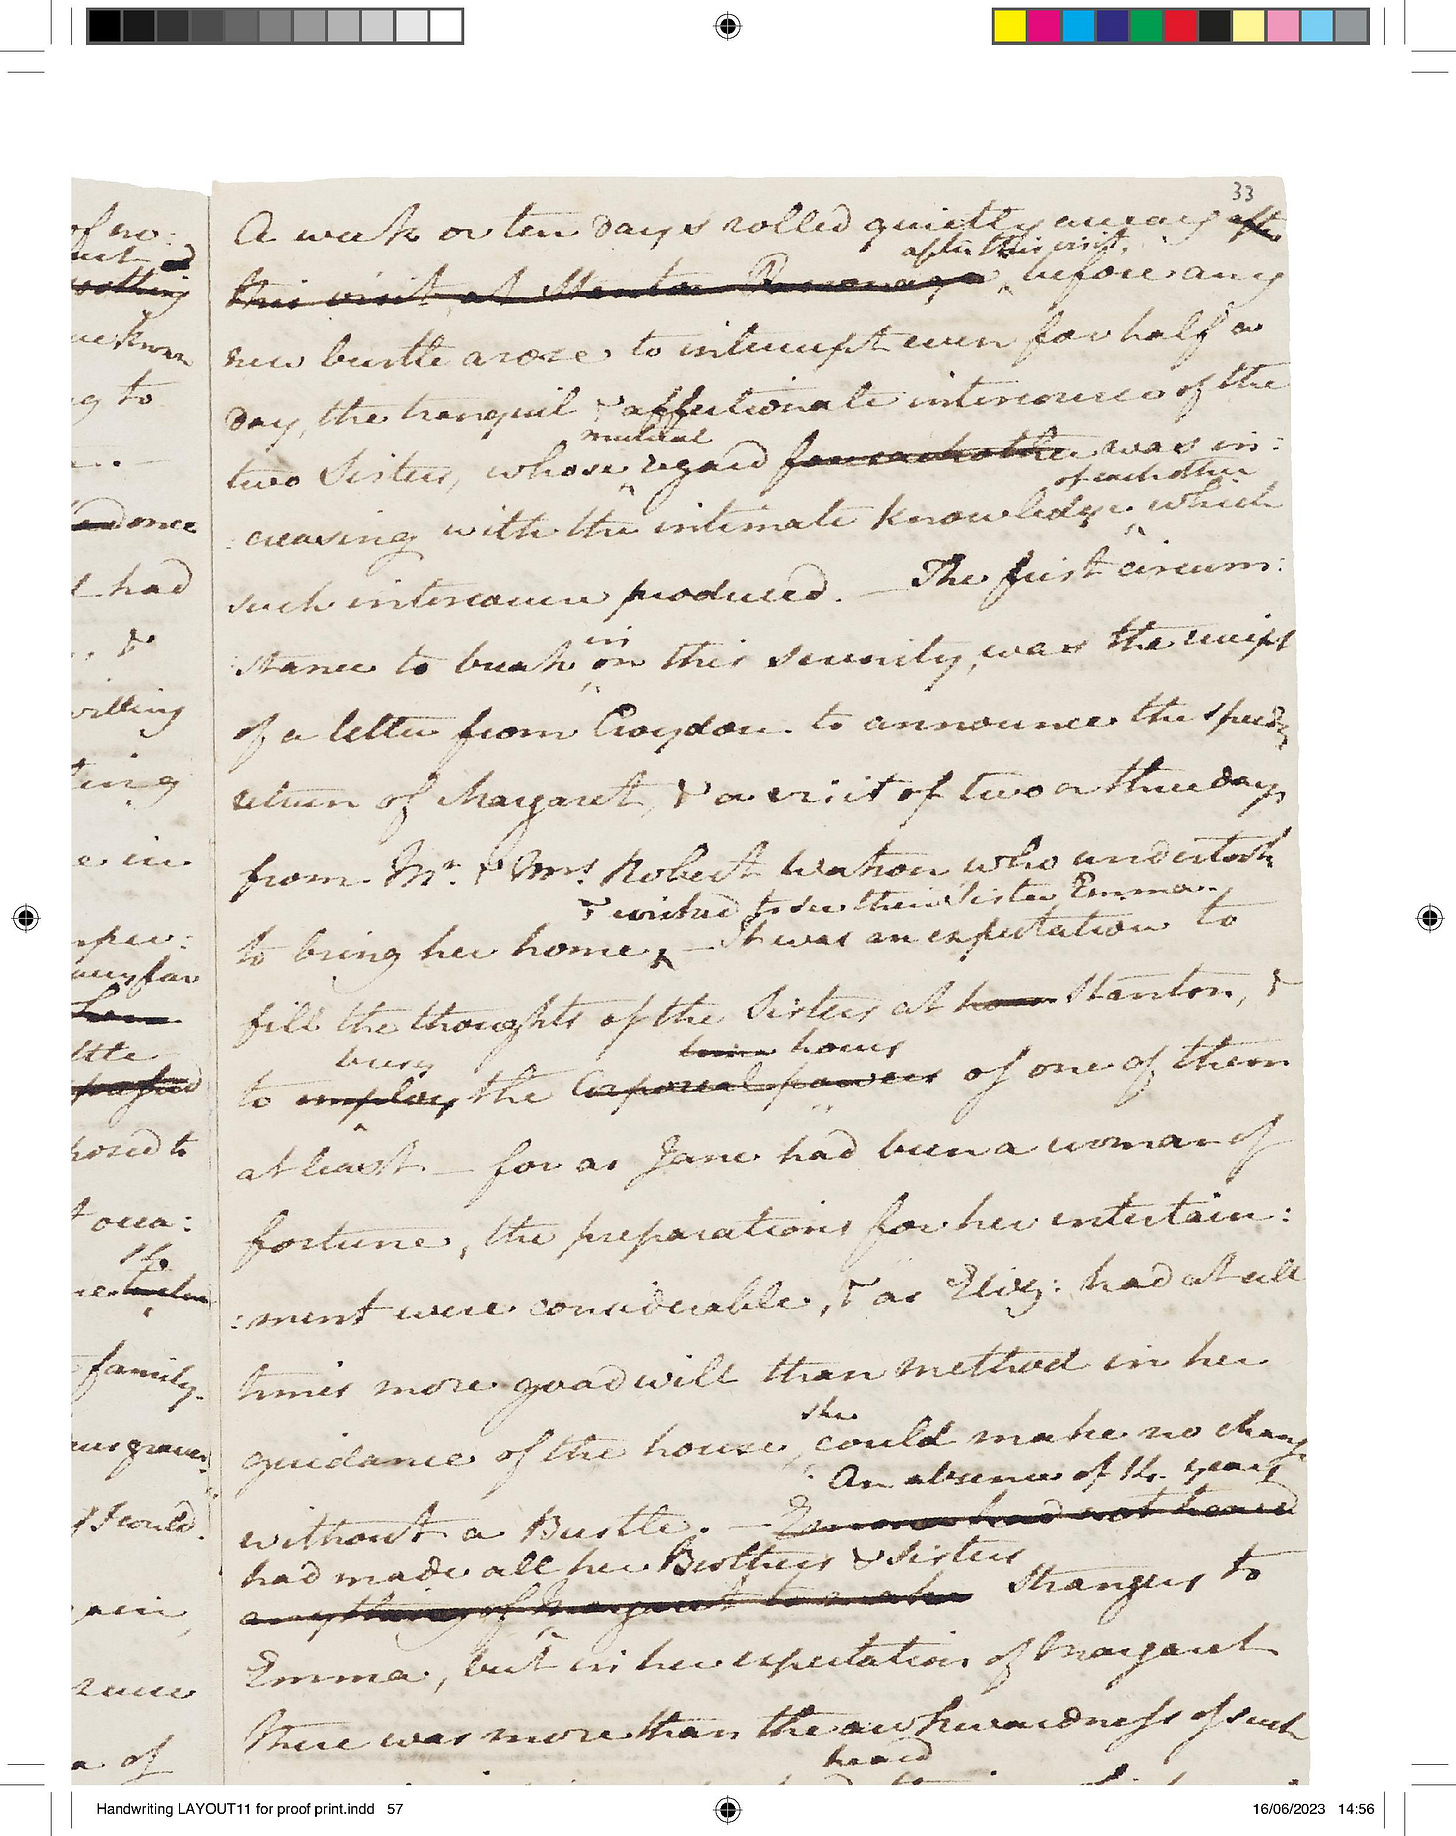 33
A week or ten days rolled quietly away after
after this visit,
this visit, at Stanton Parsonage, before any
new bustle arose to interrupt even for half a
day, the tranquil & affectionate intercourse of the
mutual
two Sisters, whose regard for each other was in:
of each other
:creasing with the intimate knowledge which
such intercourse produced. — The first circum:
in
:stance to break on this serenity, was the receipt
of a letter from Croydon to announce the speedy
return of Margaret, & a visit of two or three days
from Mr. & Mrs. Robert Watson who undertook
& wished to see their Sister Emma.
to bring her home — It was an expectation to
fill the thoughts of the Sisters at home Stanton, &
busy
hours
to employ the Corporal powers of one of them
at least — for as Jane had been a woman of
fortune, the preparations for her entertain:
:ment were considerable, & as Eliz: had at all
times more good will than method in her
she
guidance of the house, could make no change
An absence of 14 years
without a Bustle. — Emma had not heard
had made all her Brothers & Sisters
anything of Margaret to make Strangers to
Emma, but in her expectation of Margaret
there was more than the awkwardness of such
heard
of no:
nothing
g to
had
&
willing
ting
e in
spec:
posed to
t occa:
family.
I could.
a of
Handwriting LAYOUT11 for proof print.indd 57
16/06/2023 14:56